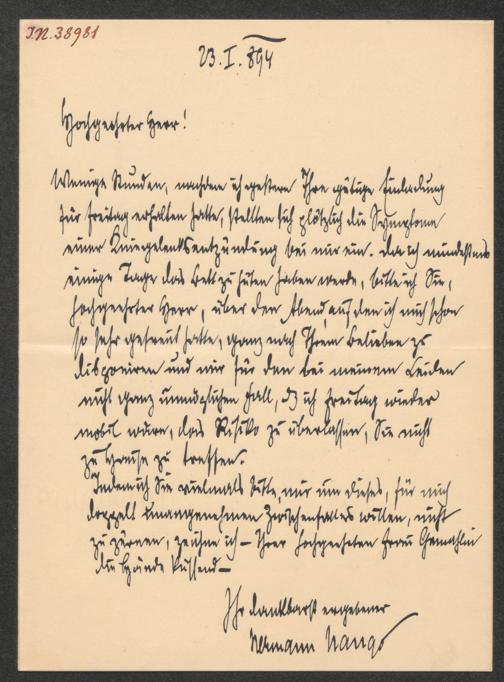 I.N. 38981
23. I. 894
Hochgeehrter Herr!
Wenige Stunden, nachdem ich gestern Ihre gütige Einladung
für Freitag erhalten hatte, stellten sich plötzlich die Symptome
einer Kniegelenksentzündung bei mir ein. Da ich mindestens
einige Tage das Bett zu hüten haben werde, bitte ich Sie,
hochgeehrter Herr, über den Abend, auf den ich mich schon
so sehr gefreut hatte, ganz nach Ihrem Belieben zu
disponiren und mir für den bei meinem Leiden
nicht ganz unmöglichen Fall, dß ich Freitag wieder
mobil wäre, das Risiko zu überlassen, Sie nicht
zu Hause zu treffen.
Indem ich Sie vielmals bitte, mir um dieses, für mich
doppelt unangenehmen Zwischenfalles willen, nicht
zu zürnen, zeichne ich – Ihrer hochgeehrten Frau Gemahlin
die Hände küssend –
Ihr dankbarst ergebener